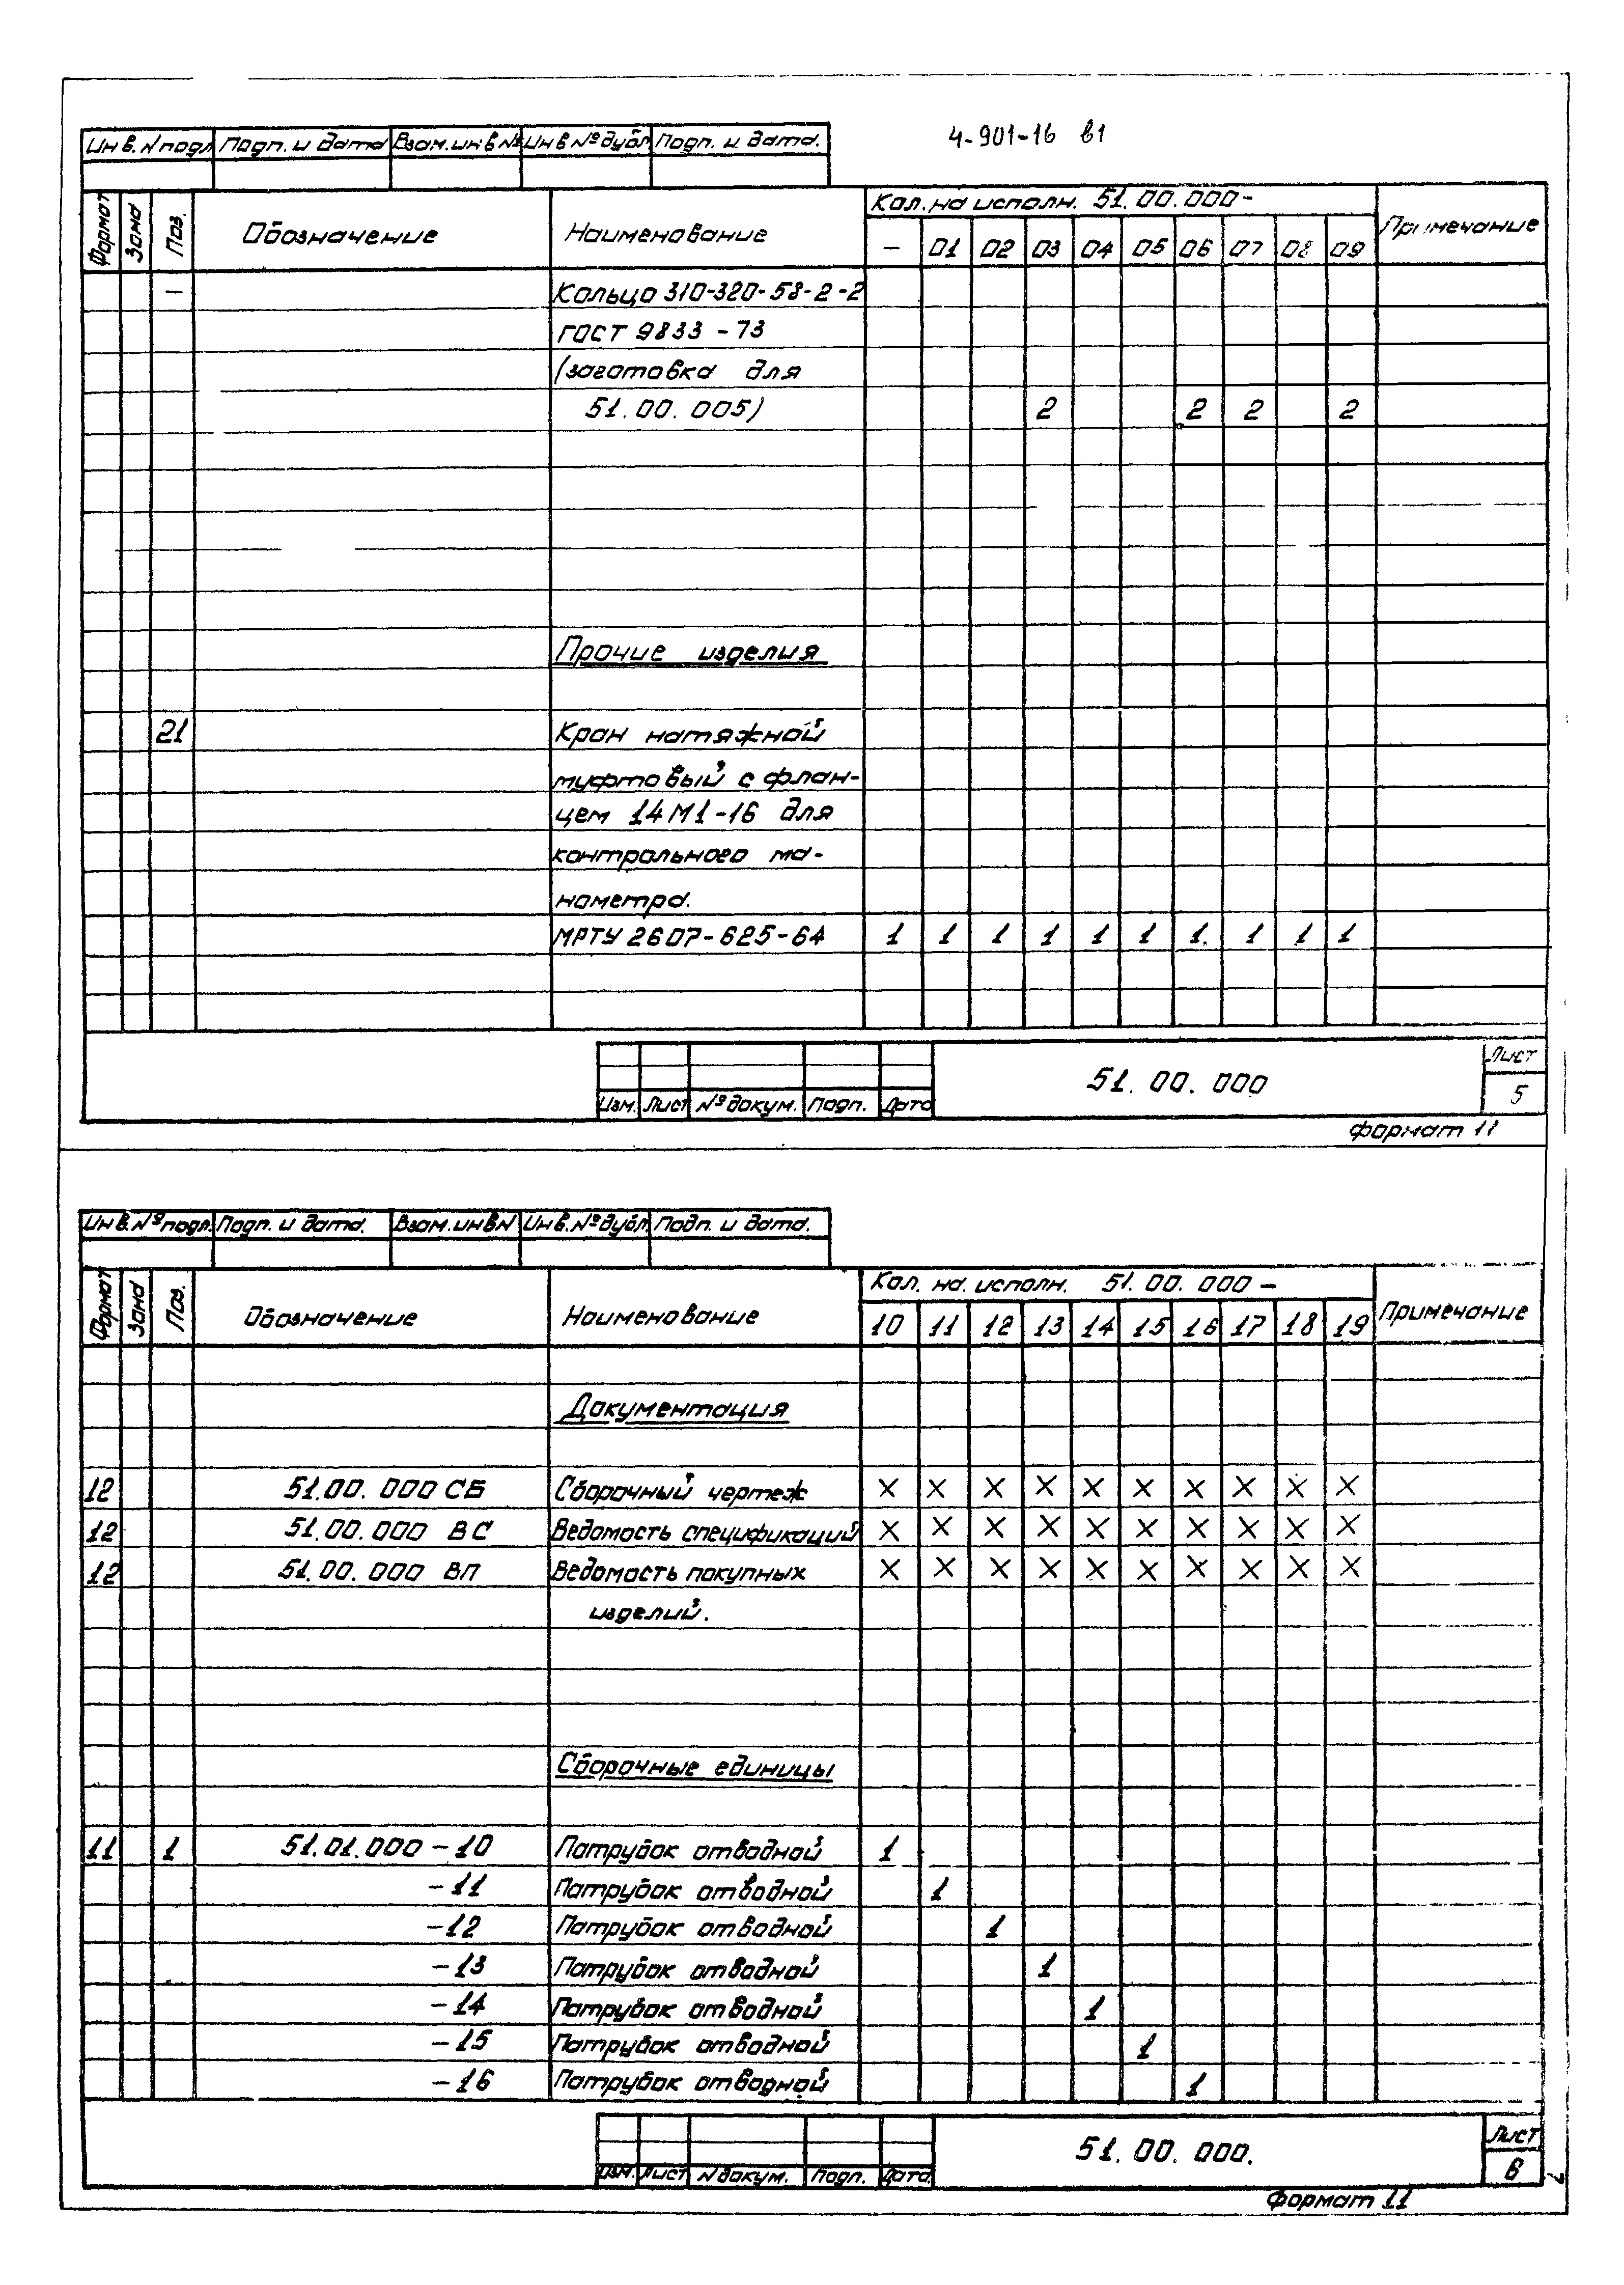 4-901-16 в1
Инв.N подл Подп. и дата Взам.инв № Инв№дубл Подп. и дата.
Формат Зона Поз. Обозначение Наименование Кол. на исполн. 51.00.000- Примечание
- 01 02 03 04 05 06 07 08 09
- Кольцо 310-320-58-2-2
ГОСТ 9833-73
(заготовка для
51.00.005) 2 2 2 2
Прочие изделия
21 Кран натяжной
муфтовый с флан-
цем 14М1-16 для
контрольного ма-
нометра.
МРТУ 2607-625-64 1 1 1 1 1 1 1. 1 1 1
Изм. Лист № докум. Подп. Дата 51.00.000 Лист
5
Формат 11
Инв.№подл. Подп. и дата. Взам.инвN Инв.№дубл Подп. и дата.
Формат Зона Поз. Обозначение Наименование Кол. на. исполн. 51.00.000- Примечание
10 11 12 13 14 15 16 17 18 19
Документация
12 51.00.000 СБ Сборочный чертеж X X X X X X X X X X
12 51.00.000 ВС Ведомость спецификаций X X X X X X X X X X
12 51.00.000 ВП Ведомость покупных X X X X X X X X X X
изделий.
Сборочные единицы
11 1 51.01.000-10 Патрубок отводной 1
-11 Патрубок отводной 1
-12 Патрубок отводной 1
-13 Патрубок отводной 1
-14 Патрубок отводной 1
-15 Патрубок отводной 1
-16 Патрубок отводной 1
Изм. Лист N докум. Подп. Дата 51.00.000. Лист
6
Формат 11